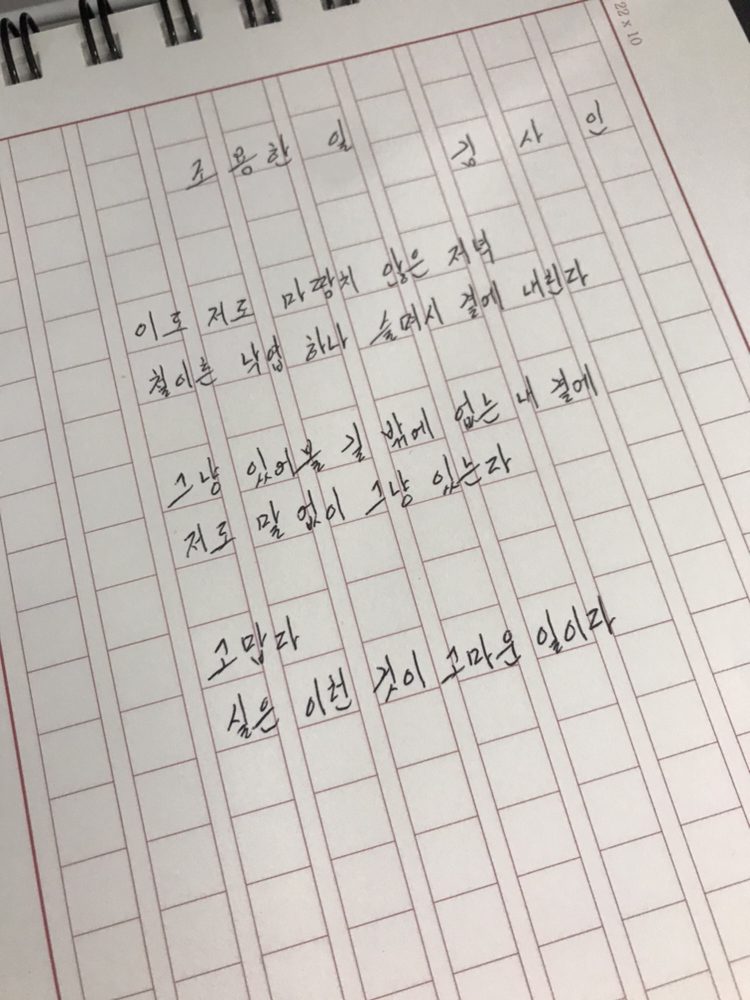 22 x 10
조용한 일 김 사 인
이도 저도 마땅치 않은 저녁
철이른 낙엽 하나 슬며시 곁에 내린다
그냥 있어볼 길 밖에 없는 내 곁에
저도 말 없이 그냥 있는다
고맙다
실은 이런 것이 고마운 일이다